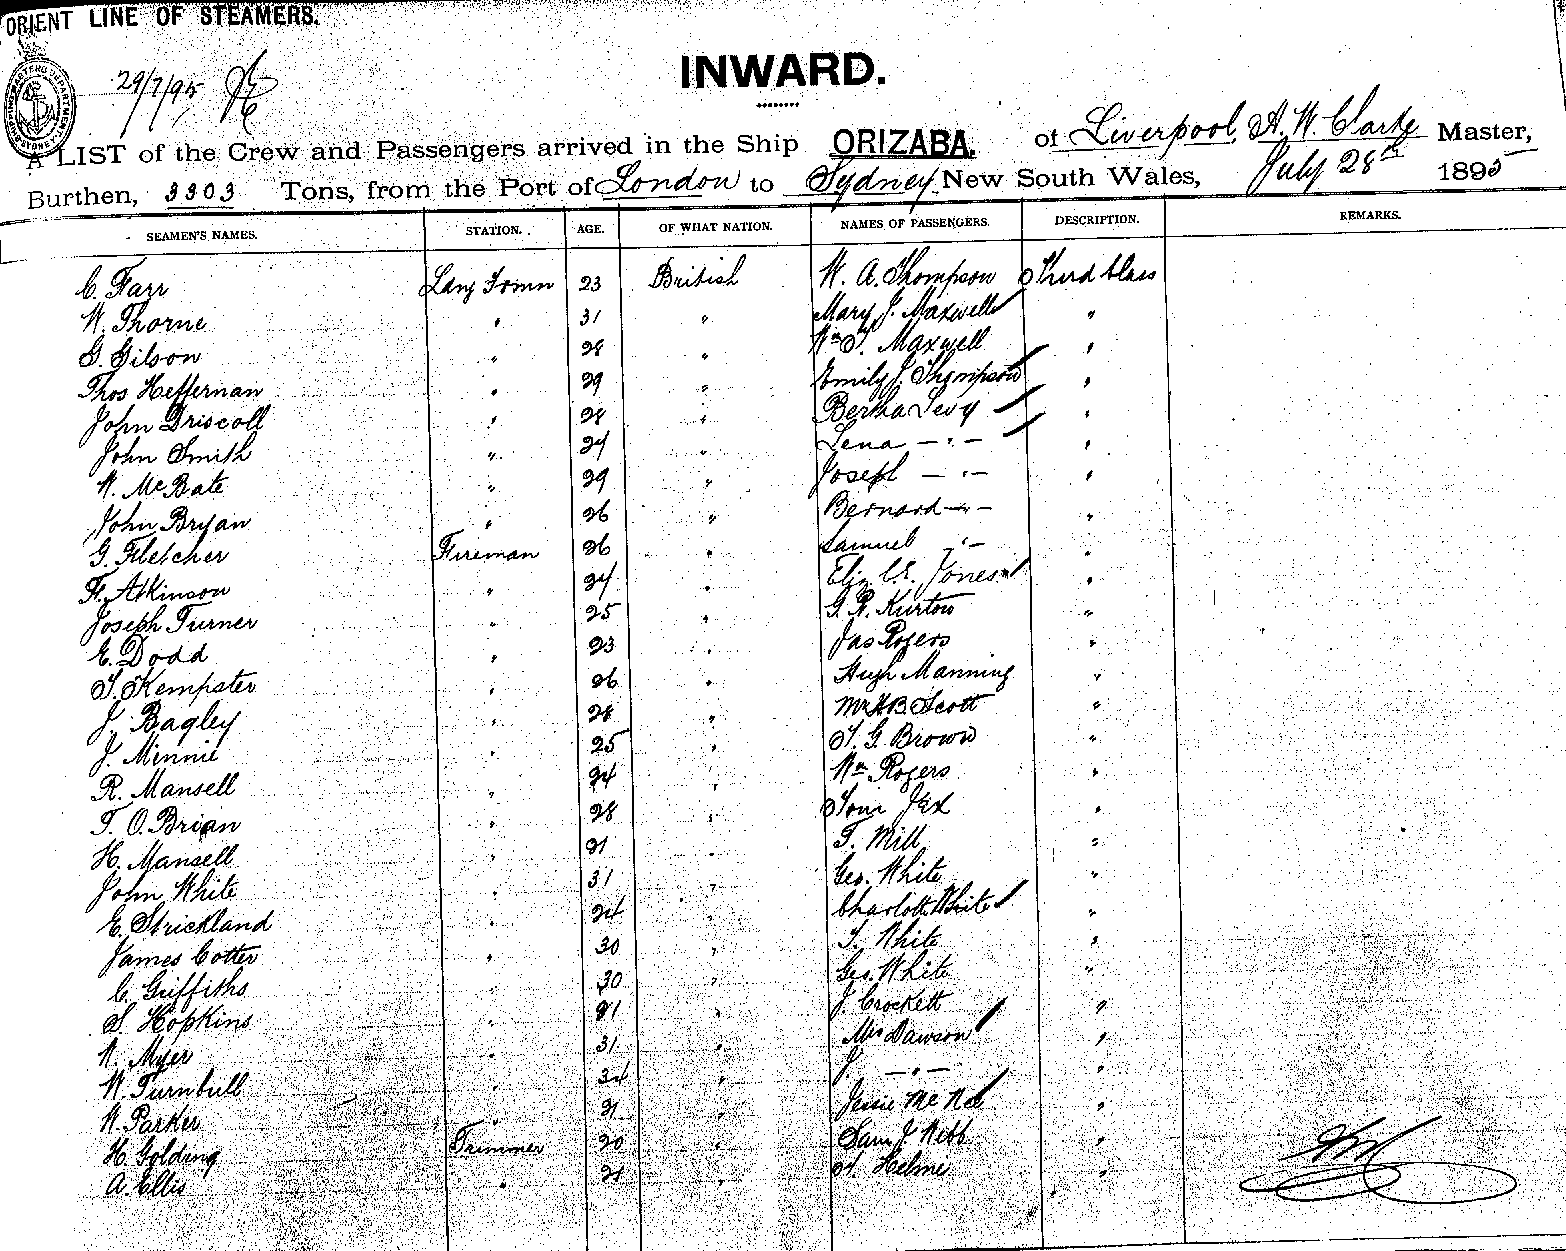 ORIENT LINE OF STEAMERS.
29/7/95
INWARD.
A LIST of the Crew and Passengers arrived in the Ship ORIZABA. of Liverpool, A. W. Clarke Master,
Burthen, 3303 Tons, from the Port of London to Sydney New South Wales, July 28th 1895
SEAMEN'S NAMES. STATION. AGE. OF WHAT NATION. NAMES OF PASSENGERS. DESCRIPTION. REMARKS.
C. Farr 23 British W. A. Thompson Third Class
W. Thorne " 31 " Mary J. Maxwell "
G. Gilson " 28 " Wm Maxwell "
Thos Heffernan " 29 " Emily J. Thompson "
John Driscoll " 28 " Bertha Levy "
John Smith " 24 " Lena — " — "
W. McBate " 29 " Joseph — " — "
John Bryan " 26 " Bernard — " — "
G. Fletcher Fireman 26 " Samuel " — "
F. Atkinson " 24 " Eliz C.E. Jones "
Joseph Turner " 25 " G. R. Kurton "
E. Dodd " 23 " Jas Rogers "
T. Kempster " 26 " Hugh Manning "
J. Bagley " 28 " Mr H B Scott "
J. Minnie " 25 " T. G. Brown "
R. Mansell " 24 " Wm Rogers "
T. O. Brian " 28 " Tom Jex "
H. Mansell " 21 " T. Mill "
John White " 31 " Geo. White "
E. Strickland " 24 " Charlotte White "
James Cotter " 30 " T. White "
C. Griffiths " 30 " Geo. White "
S. Hopkins " 21 " J. Crockett "
W. Myer " 31 " Mrs Dawson "
W. Turnbull " 34 " J — " — "
W. Parker " 21 " Jessie "
H. Golding Trimmer 20 " Sam J Webb "
A. Ellis " 21 " Helme "